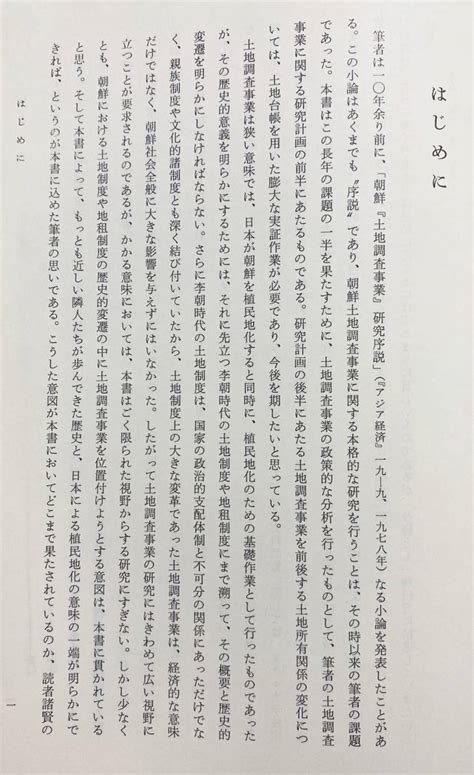 はじめに
筆者は一〇年余り前に、「朝鮮『土地調査事業』研究序説」(『アジア経済』一九―九、一九七八年)なる小論を発表したことがあ
る。この小論はあくまでも〝序説〟であり、朝鮮土地調査事業に関する本格的な研究を行うことは、その時以来の筆者の課題
であった。本書はこの長年の課題の一半を果たすために、土地調査事業の政策的な分析を行ったものとして、筆者の土地調査
事業に関する研究計画の前半にあたるものである。研究計画の後半にあたる土地調査事業を前後する土地所有関係の変化につ
いては、土地台帳を用いた膨大な実証作業が必要であり、今後を期したいと思っている。
土地調査事業は狭い意味では、日本が朝鮮を植民地化すると同時に、植民地化のための基礎作業として行ったものであった
が、その歴史的意義を明らかにするためには、それに先立つ李朝時代の土地制度や地租制度にまで溯って、その概要と歴史的
変遷を明らかにしなければならない。さらに李朝時代の土地制度は、国家の政治的支配体制と不可分の関係にあっただけでな
く、親族制度や文化的諸制度とも深く結び付いていたから、土地制度上の大きな変革であった土地調査事業は、経済的な意味
だけではなく、朝鮮社会全般に大きな影響を与えずにはいなかった。したがって土地調査事業の研究にはきわめて広い視野に
立つことが要求されるのであるが、かかる意味においては、本書はごく限られた視野からする研究にすぎない。しかし少なく
とも、朝鮮における土地制度や地租制度の歴史的変遷の中に土地調査事業を位置付けようとする意図は、本書に貫かれている
と思う。そして本書によって、もっとも近しい隣人たちが歩んできた歴史と、日本による植民地化の意味の一端が明らかにで
きれば、というのが本書に込めた筆者の思いである。こうした意図が本書においてどこまで果たされているのか、読者諸賢の
はじめに
一